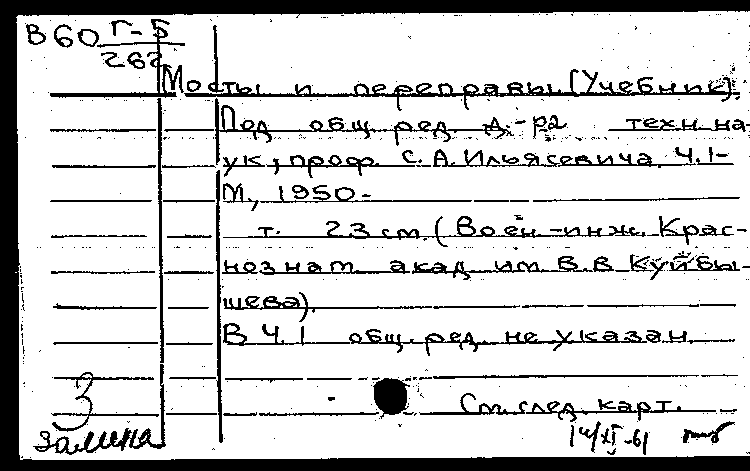 В 60 Г-5
262
Мосты и переправы. (Учебник).
Под общ. ред. д-ра техн. на-
ук, проф. С. А. Ильясевича. Ч.1-
М., 1950-
т. 23 см. (Воен-инж. Крас-
нознам. акад. им. В. В. Куйбы-
шева).
В Ч. 1 общ. ред. не указан.
См. след. карт.
З
залина
14/XI-61